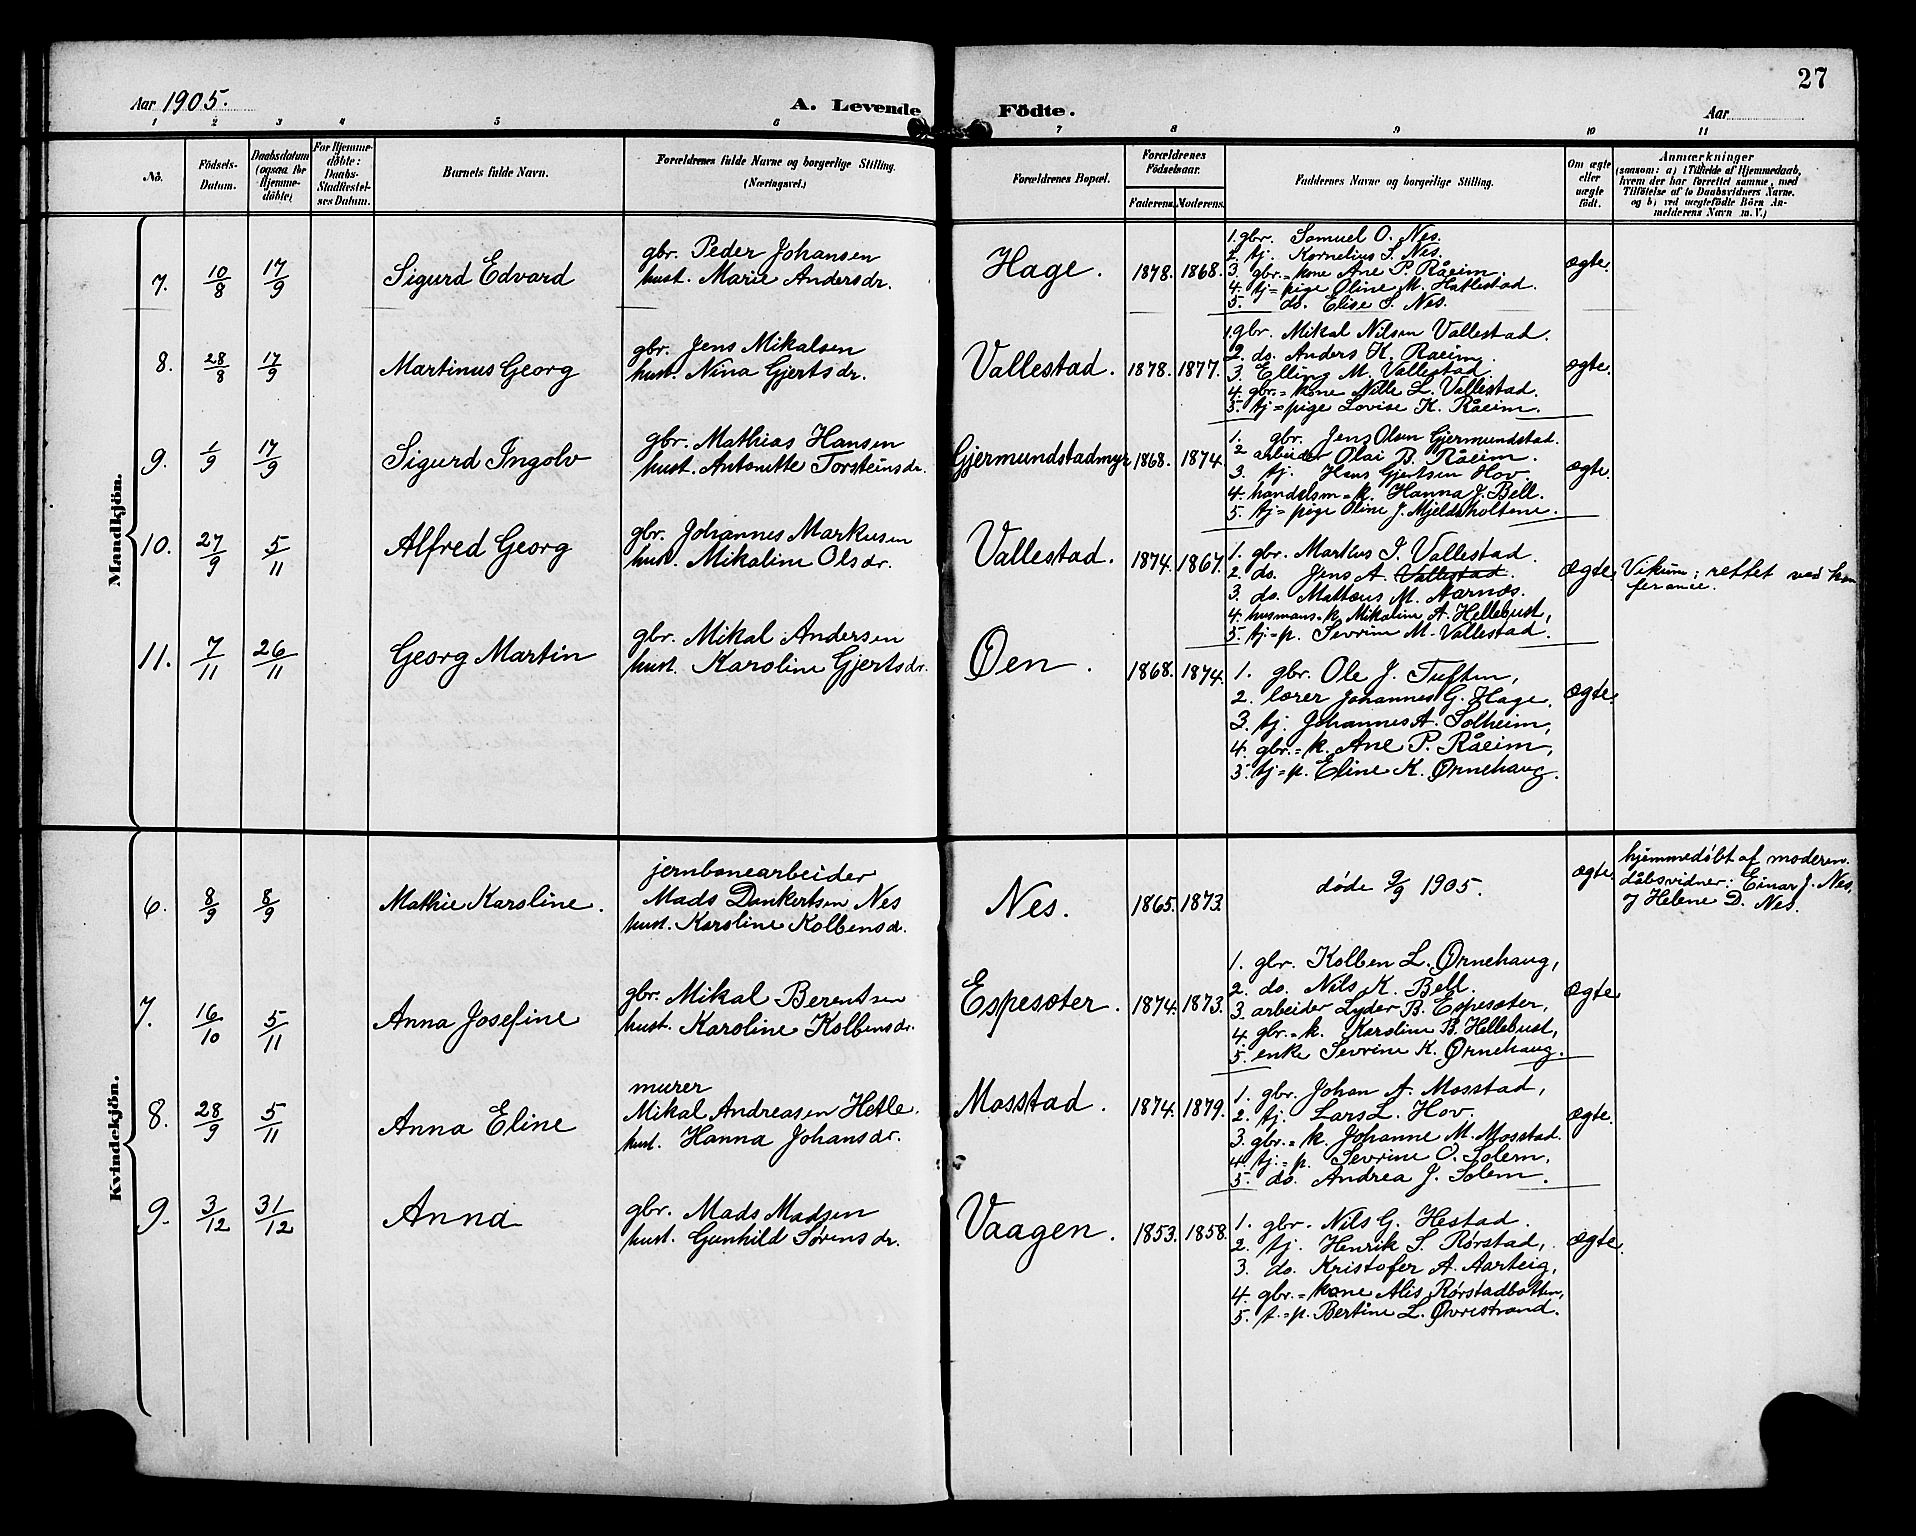 27
Aar 1905.
A. Levende Födte.
Aar
1 2 3 4 5 6 7 8 9 10 11
No.
Födsels-Datum.
Daabsdatum (ogsaa for Hjemme-döbte)
For Hjemme-döbte: Daabs-Stadfæstel-ses Datum.
Barnets fulde Navn.
Forældrenes fulde Navne og borgerlige Stilling. (Næringsvei.)
Forældrenes Bopæl.
Forældrenes Födselsaar.
Faderens. Moderens.
Faddernes Navne og borgerlige Stilling.
Om ægte eller uægte født.
Anmærkninger
(saasom: a) i Tilfælde af Hjemmedaab, hvem der har forrettet samme, med Tilföielse af to Daabsvidners Navne, og b) ved uægtefödte Börn An-melderens Navn m. V.)
Mandkjön.
7. 10/8 17/9 Sigurd Edvard
gbr. Peder Johansen
hust. Marie Andersdr.
Hage. 1878. 1868.
1. gbr. Samuel O. Nes.
2. tj. Kornelius S. Nes.
3. gbr.=kone Ane P. Råeim.
4. tj=pige Oline M. Hatlestad.
5. do. Elise S. Nes.
ægte.
8. 28/8 17/9 Martinus Georg
gbr. Jens Mikalsen
hust. Nina Gjertsdr.
Vallestad. 1878. 1877.
1. gbr. Mikal Nilsen Vallestad.
2. do. Anders K. Raeim.
3. Elling M. Vallestad.
4. gbr.=kone Nille L. Vallestad.
5. tj=pige Lovise K. Råeim.
ægte.
9. 1/9 17/9 Sigurd Ingolv
gbr. Mathias Hansen
hust. Antonette Torsteinsdr.
Gjermundstadmyr 1868. 1874.
1. gbr. Jens Olsen Gjermundstad.
2 arbeider Olai B. Råeim.
3. tj. Hans Gjertsen Hov.
4. handelsm=k. Hanna J. Bell.
5. tj=pige Oline J. Mjeldsholtene.
ægte.
10. 27/9 5/11 Alfred Georg
gbr. Johannes Markusen
hust. Mikaline Olsdr.
Vallestad. 1874. 1867.
1. gbr. Markus J. Vallestad.
2. do. Jens A. Vallestad.
3. do. Mattæus M. Aarnæs.
4. husmans=k. Mikaline A. Hellebust,
5. tj=p. Sevrine M. Vallestad.
ægte. Vikum; rettet ved kon
ferance.
11. 7/11 26/11 Georg Martin
gbr. Mikal Andersen
hust. Karoline Gjertsdr.
Øen. 1868. 1874.
1. gbr. Ole J. Tuften,
2. lærer Johannes G. Hage.
3. tj. Johannes A. Solheim,
4. gbr.=k. Ane P. Råeim,
5. tj=p. Eline K. Ørnehaug.
ægte.
Kvindekjön.
6. 8/9 8/9 Mathie Karoline.
jernbanearbeider
Mads Dankertsen Nes
hust. Karoline Kolbensdr.
Nes. 1865. 1873.
døde 9/9 1905.
ægte
hjemmedøbt af moderen.
dåbsvidner: Einar J. Nes.
og Helene D. Nes.
7. 16/10 5/11 Anna Josefine
gbr. Mikal Berentsen
hust. Karoline Kolbensdr.
Espesæter. 1874. 1873.
1. gbr. Kolben L. Ørnehaug,
2. do. Nils K. Bell.
3. arbeider Lyder B. Espesæter,
4 gbr.=k. Karoline B. Hellebust,
5. enke Sevrine K. Ørnehaug.
ægte
8. 28/9 5/11 Anna Eline
murer
Mikal Andreasen Hetle.
hust. Hanna Johansdr.
Mosstad. 1874. 1879.
1. gbr. Johan A. Mosstad,
2. tj. Lars L. Hov.
3. gbr.=k. Johanne M. Mosstad.
4. tj.=p. Sevrine O. Solem,
5. do. Andrea J. Solem.
ægte.
9. 3/12 31/12 Anna
gbr. Mads Madsen
hust. Gunhild Sørensdr.
Vaagen. 1853. 1858.
1. gbr. Nils G. Hestad.
2. tj. Henrik S. Rørstad,
3. do. Kristofer A. Aarteig,
4. gbr.=kone Alis Rørstadbotten,
5. t.=p. Bertine L. Øvrestrand.
ægte.